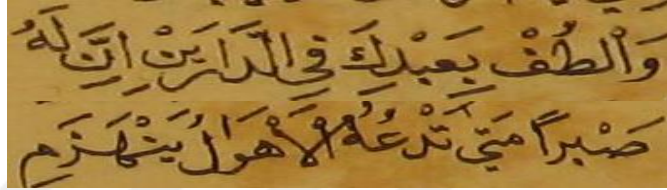 وَالْطُفْ بِعَبْدِكَ فِي الدَّارَيْنِ اِنَّ لَهُ
صَبْرًا مَتَى تَدْعُهُ الْأَهْوَالُ يَنْهَزِمِ